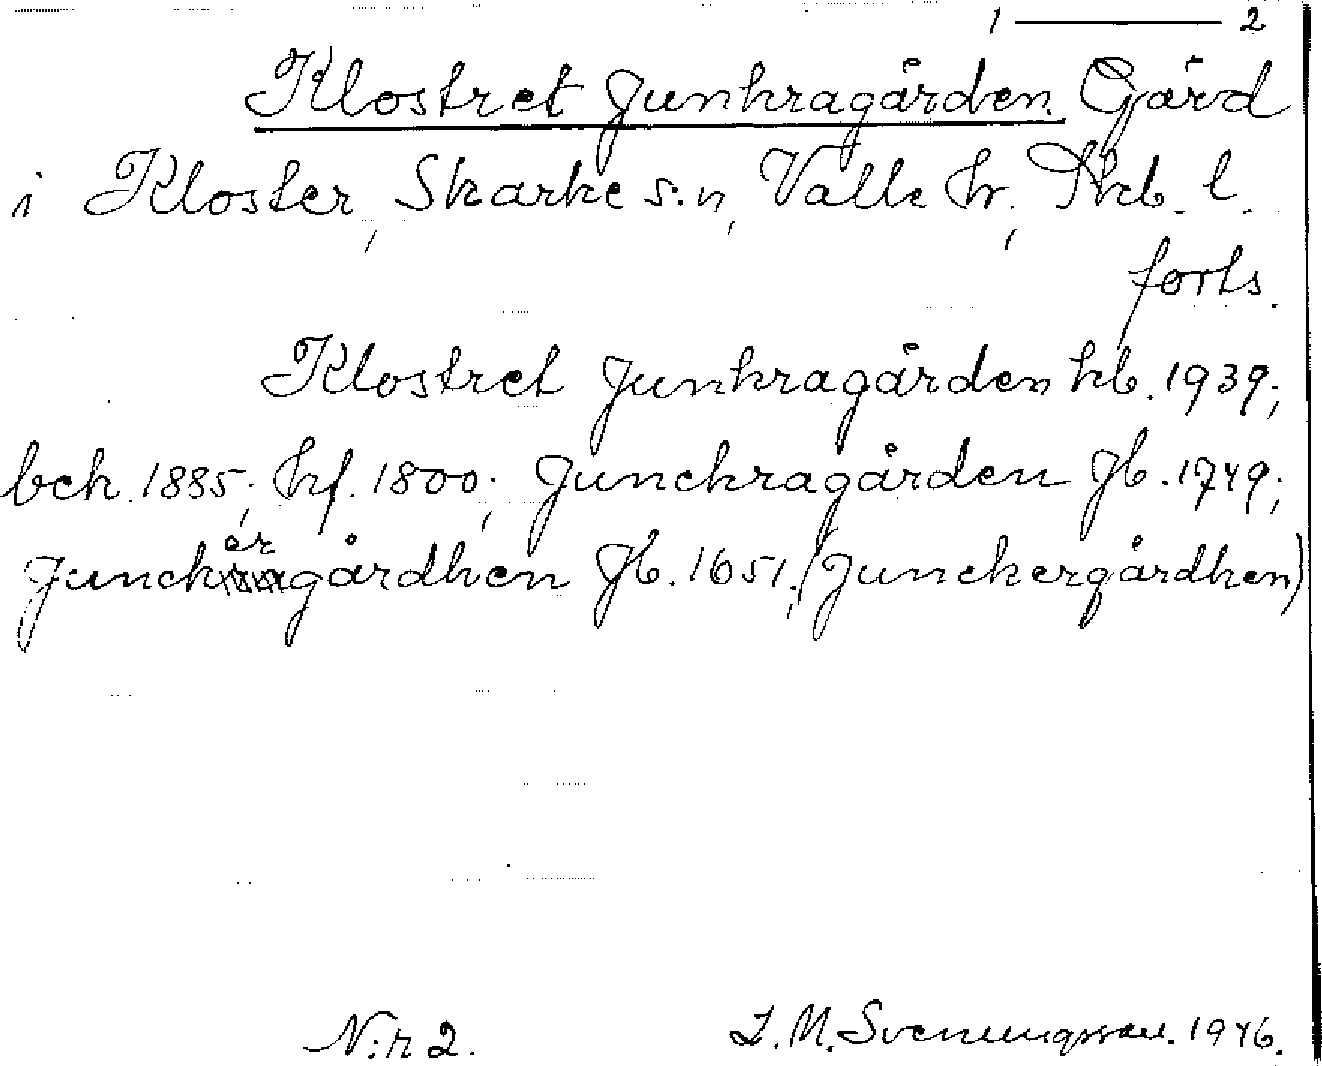 1 — 2
Klostret Junkragården. Gård
i Kloster, Skarke s:n, Valle hr, Skb. l.
forts.
Klostret Junkragården kb. 1939;
bek. 1885; hf. 1800; Junckragården Jb. 1749;
Junckärgårdhen Jb. 1651; (Junckergårdhen)
N:r 2.
I. M. Svenungsson. 1946.